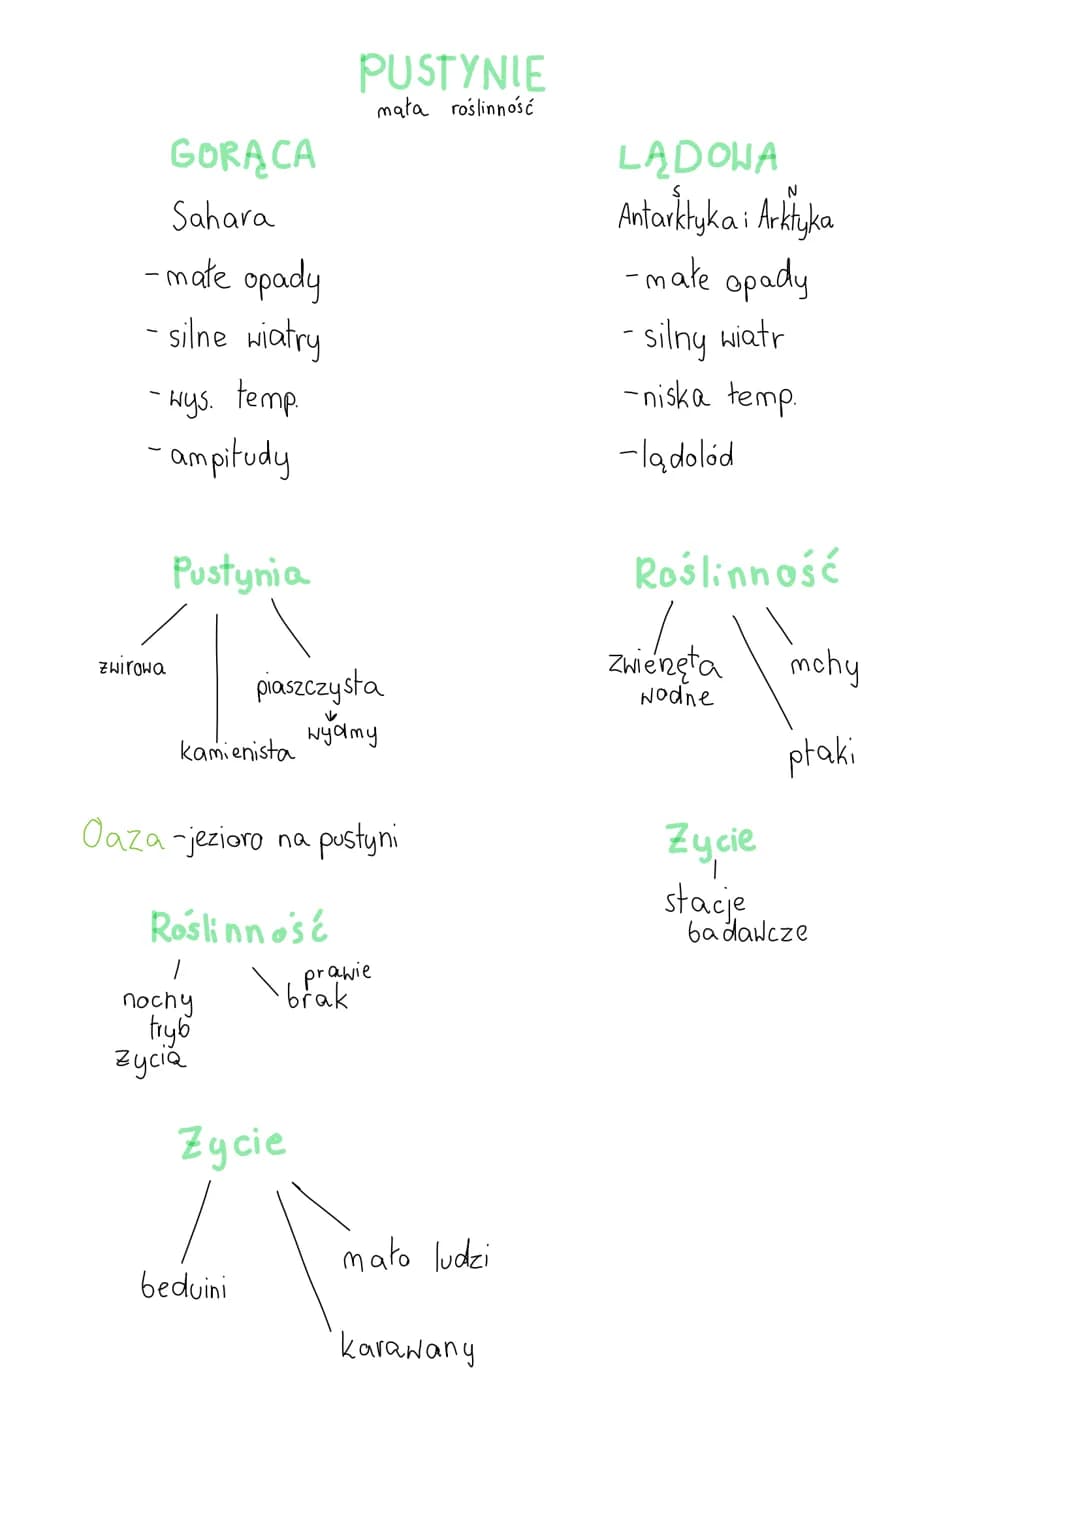 PUSTYNIE
mała roślinność
GORĄCA
Sahara
- małe opady
- silne wiatry
- wys. temp.
- ampitudy
Pustynia
zwirowa
piaszczysta
wydmy
kamienista
Oaza - jezioro na pustyni
Roślinność
nochy
tryb
zycia
prawie
brak
Zycie
beduini
mało ludzi
karawany
LĄDOWA
S N
Antarktyka i Arktyka
- małe opady
- silny wiatr
- niska temp.
- lądolód
Roślinność
zwierzęta
wodne
mchy
ptaki
Zycie
stacje
badawcze